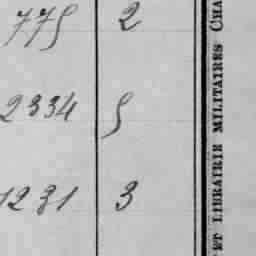 775 2
2334 5
1231 3
ET LIBRAIRIE MILITAIRES CHA